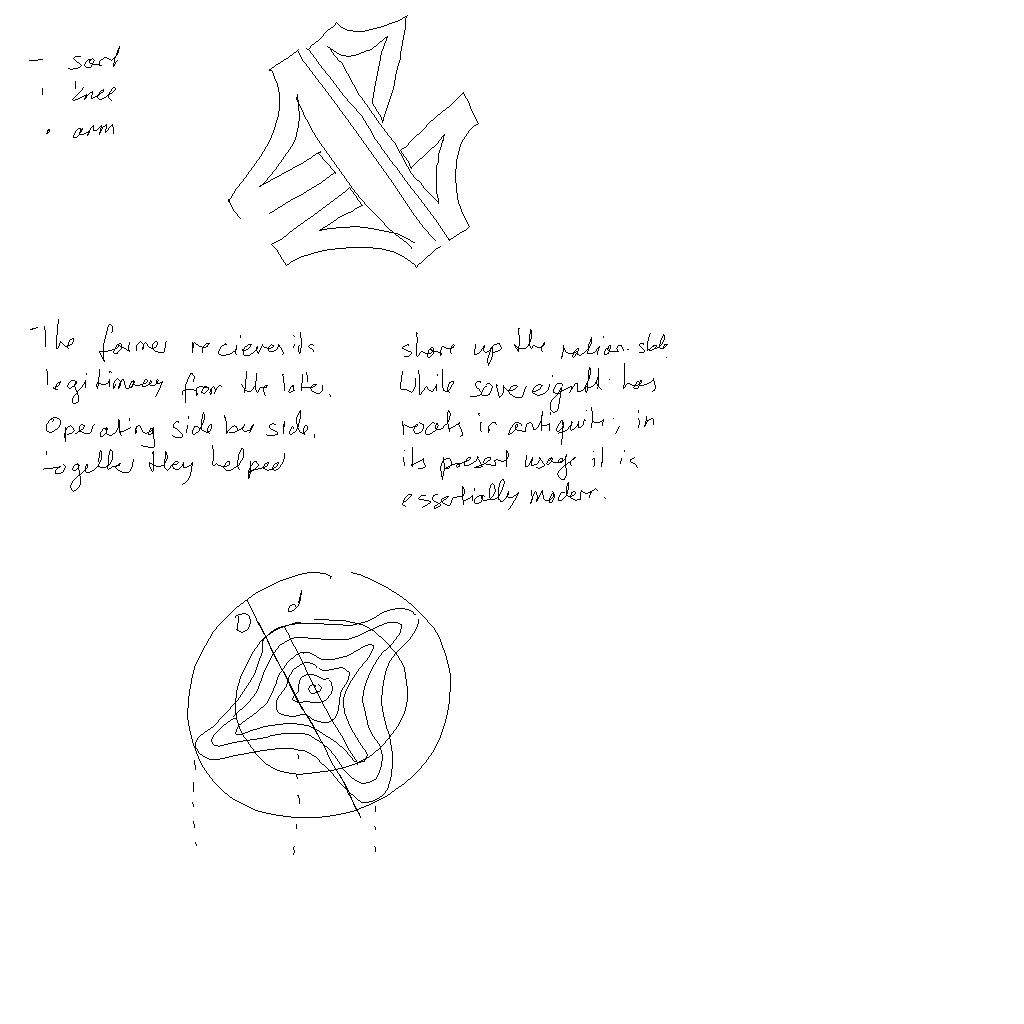 - sort
- knee
- arm
The former recieves its
legitimacy from the latter.
Operating side by side,
together they helped
shore up the nation-state.
While sovereignty has
roots in antiquity, in
its present usage it is
essentially modern.
D
d